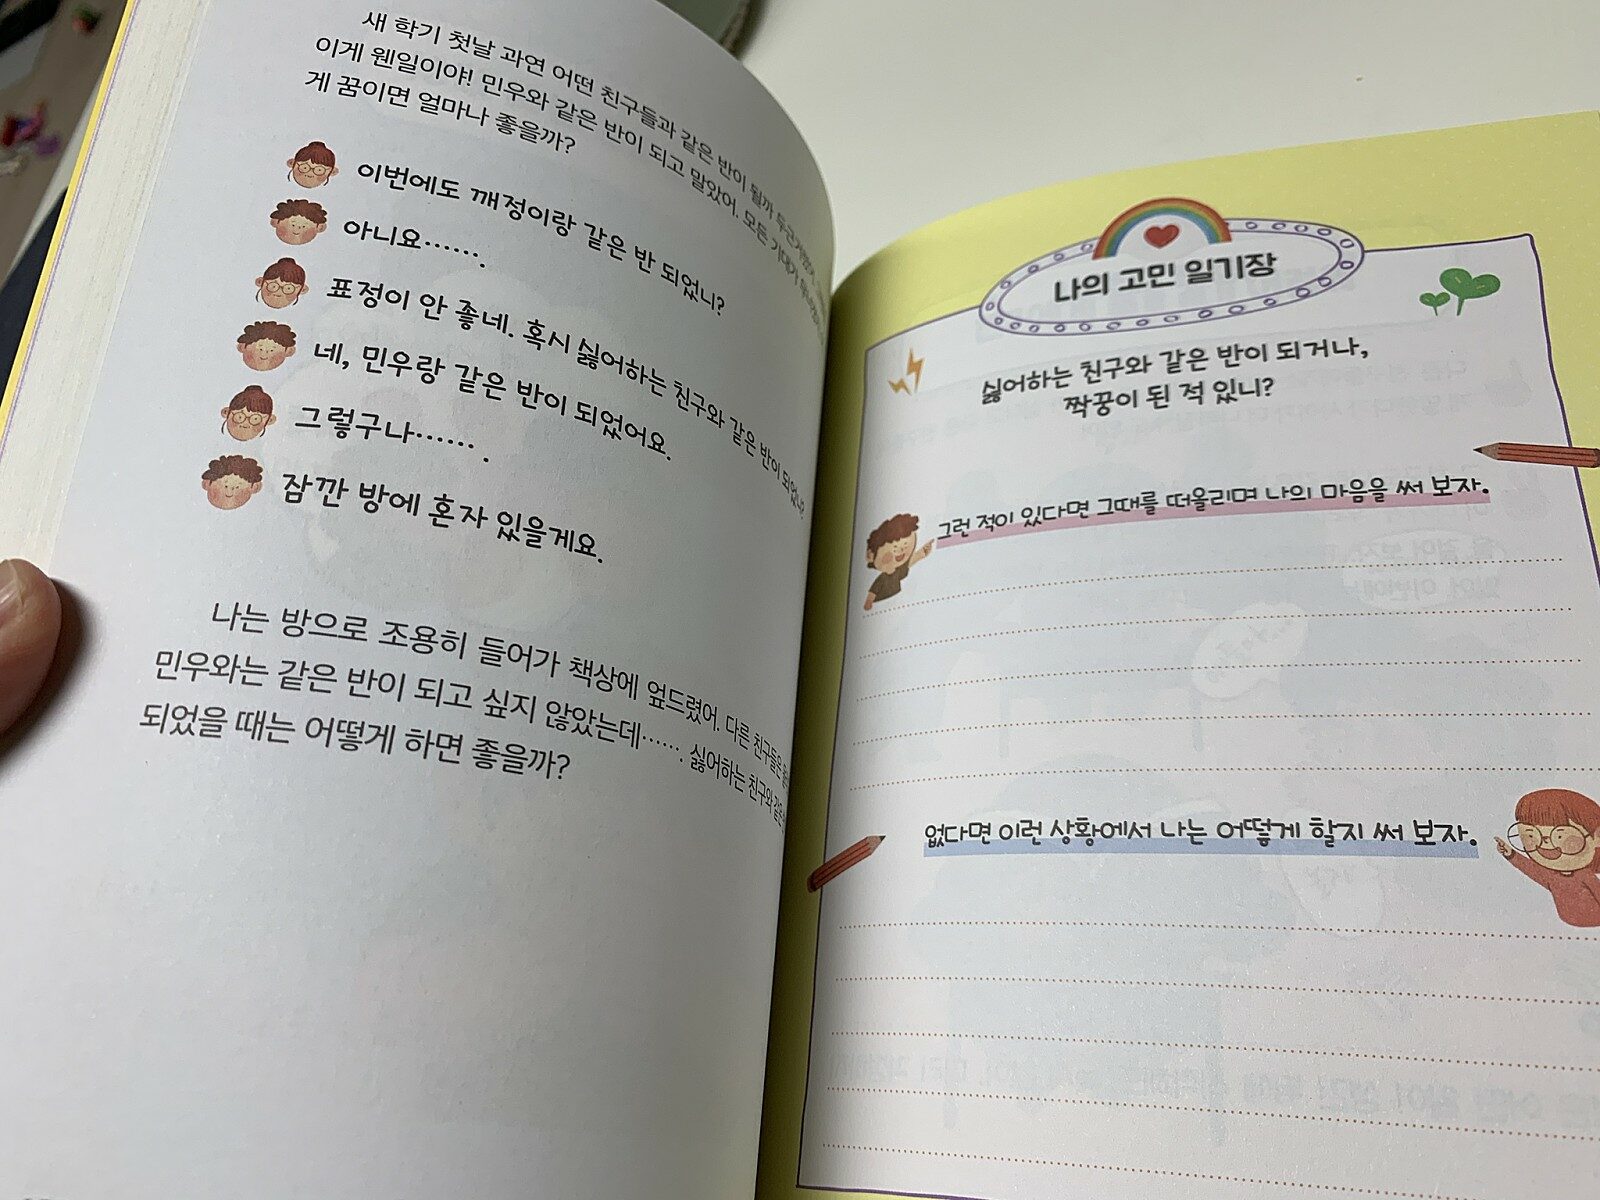 새 학기 첫날 과연 어떤 친구들과 같은 반이 될까 두근거렸어.
이게 웬일이야! 민우와 같은 반이 되고 말았어. 모든 기대가
게 꿈이면 얼마나 좋을까?
이번에도 깨정이랑 같은 반 되었니?
아니요…….
표정이 안 좋네. 혹시 싫어하는 친구와 같은 반이 되었니?
네, 민우랑 같은 반이 되었어요.
그렇구나…….
잠깐 방에 혼자 있을게요.
나는 방으로 조용히 들어가 책상에 엎드렸어. 다른 친구들은
민우와는 같은 반이 되고 싶지 않았는데……. 싫어하는 친구와 같은
되었을 때는 어떻게 하면 좋을까?
나의 고민 일기장
싫어하는 친구와 같은 반이 되거나,
짝꿍이 된 적 있니?
그런 적이 있다면 그때를 떠올리며 나의 마음을 써 보자.
없다면 이런 상황에서 나는 어떻게 할지 써 보자.